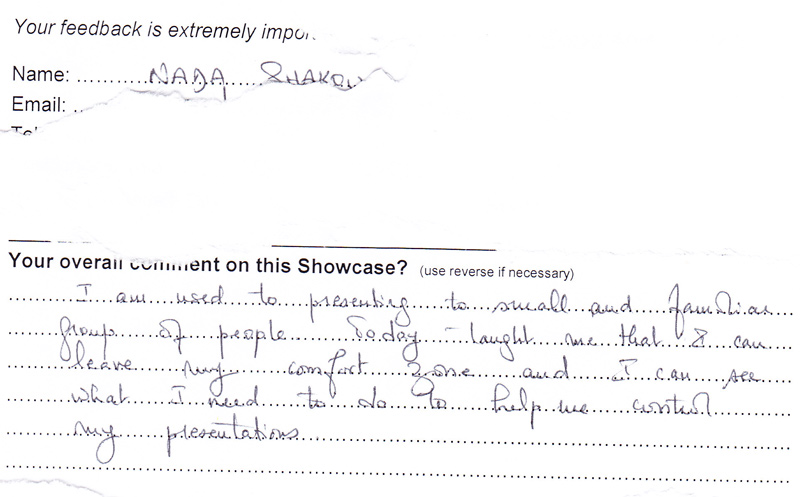 Your feedback is extremely impor
Name: ............NADA......SHAKOU
Email: ..
Tel
Your overall comment on this Showcase? (use reverse if necessary)
I am used to presenting to small and familiar
group of people. Today - taught me that I can
leave my comfort zone and I can see
what I need to do to help me control
my presentations